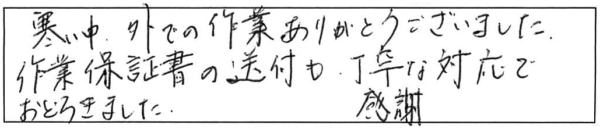 寒い中、外での作業ありがとうございました。
作業保証書の送付も、丁寧な対応で
おどろきました。 感謝